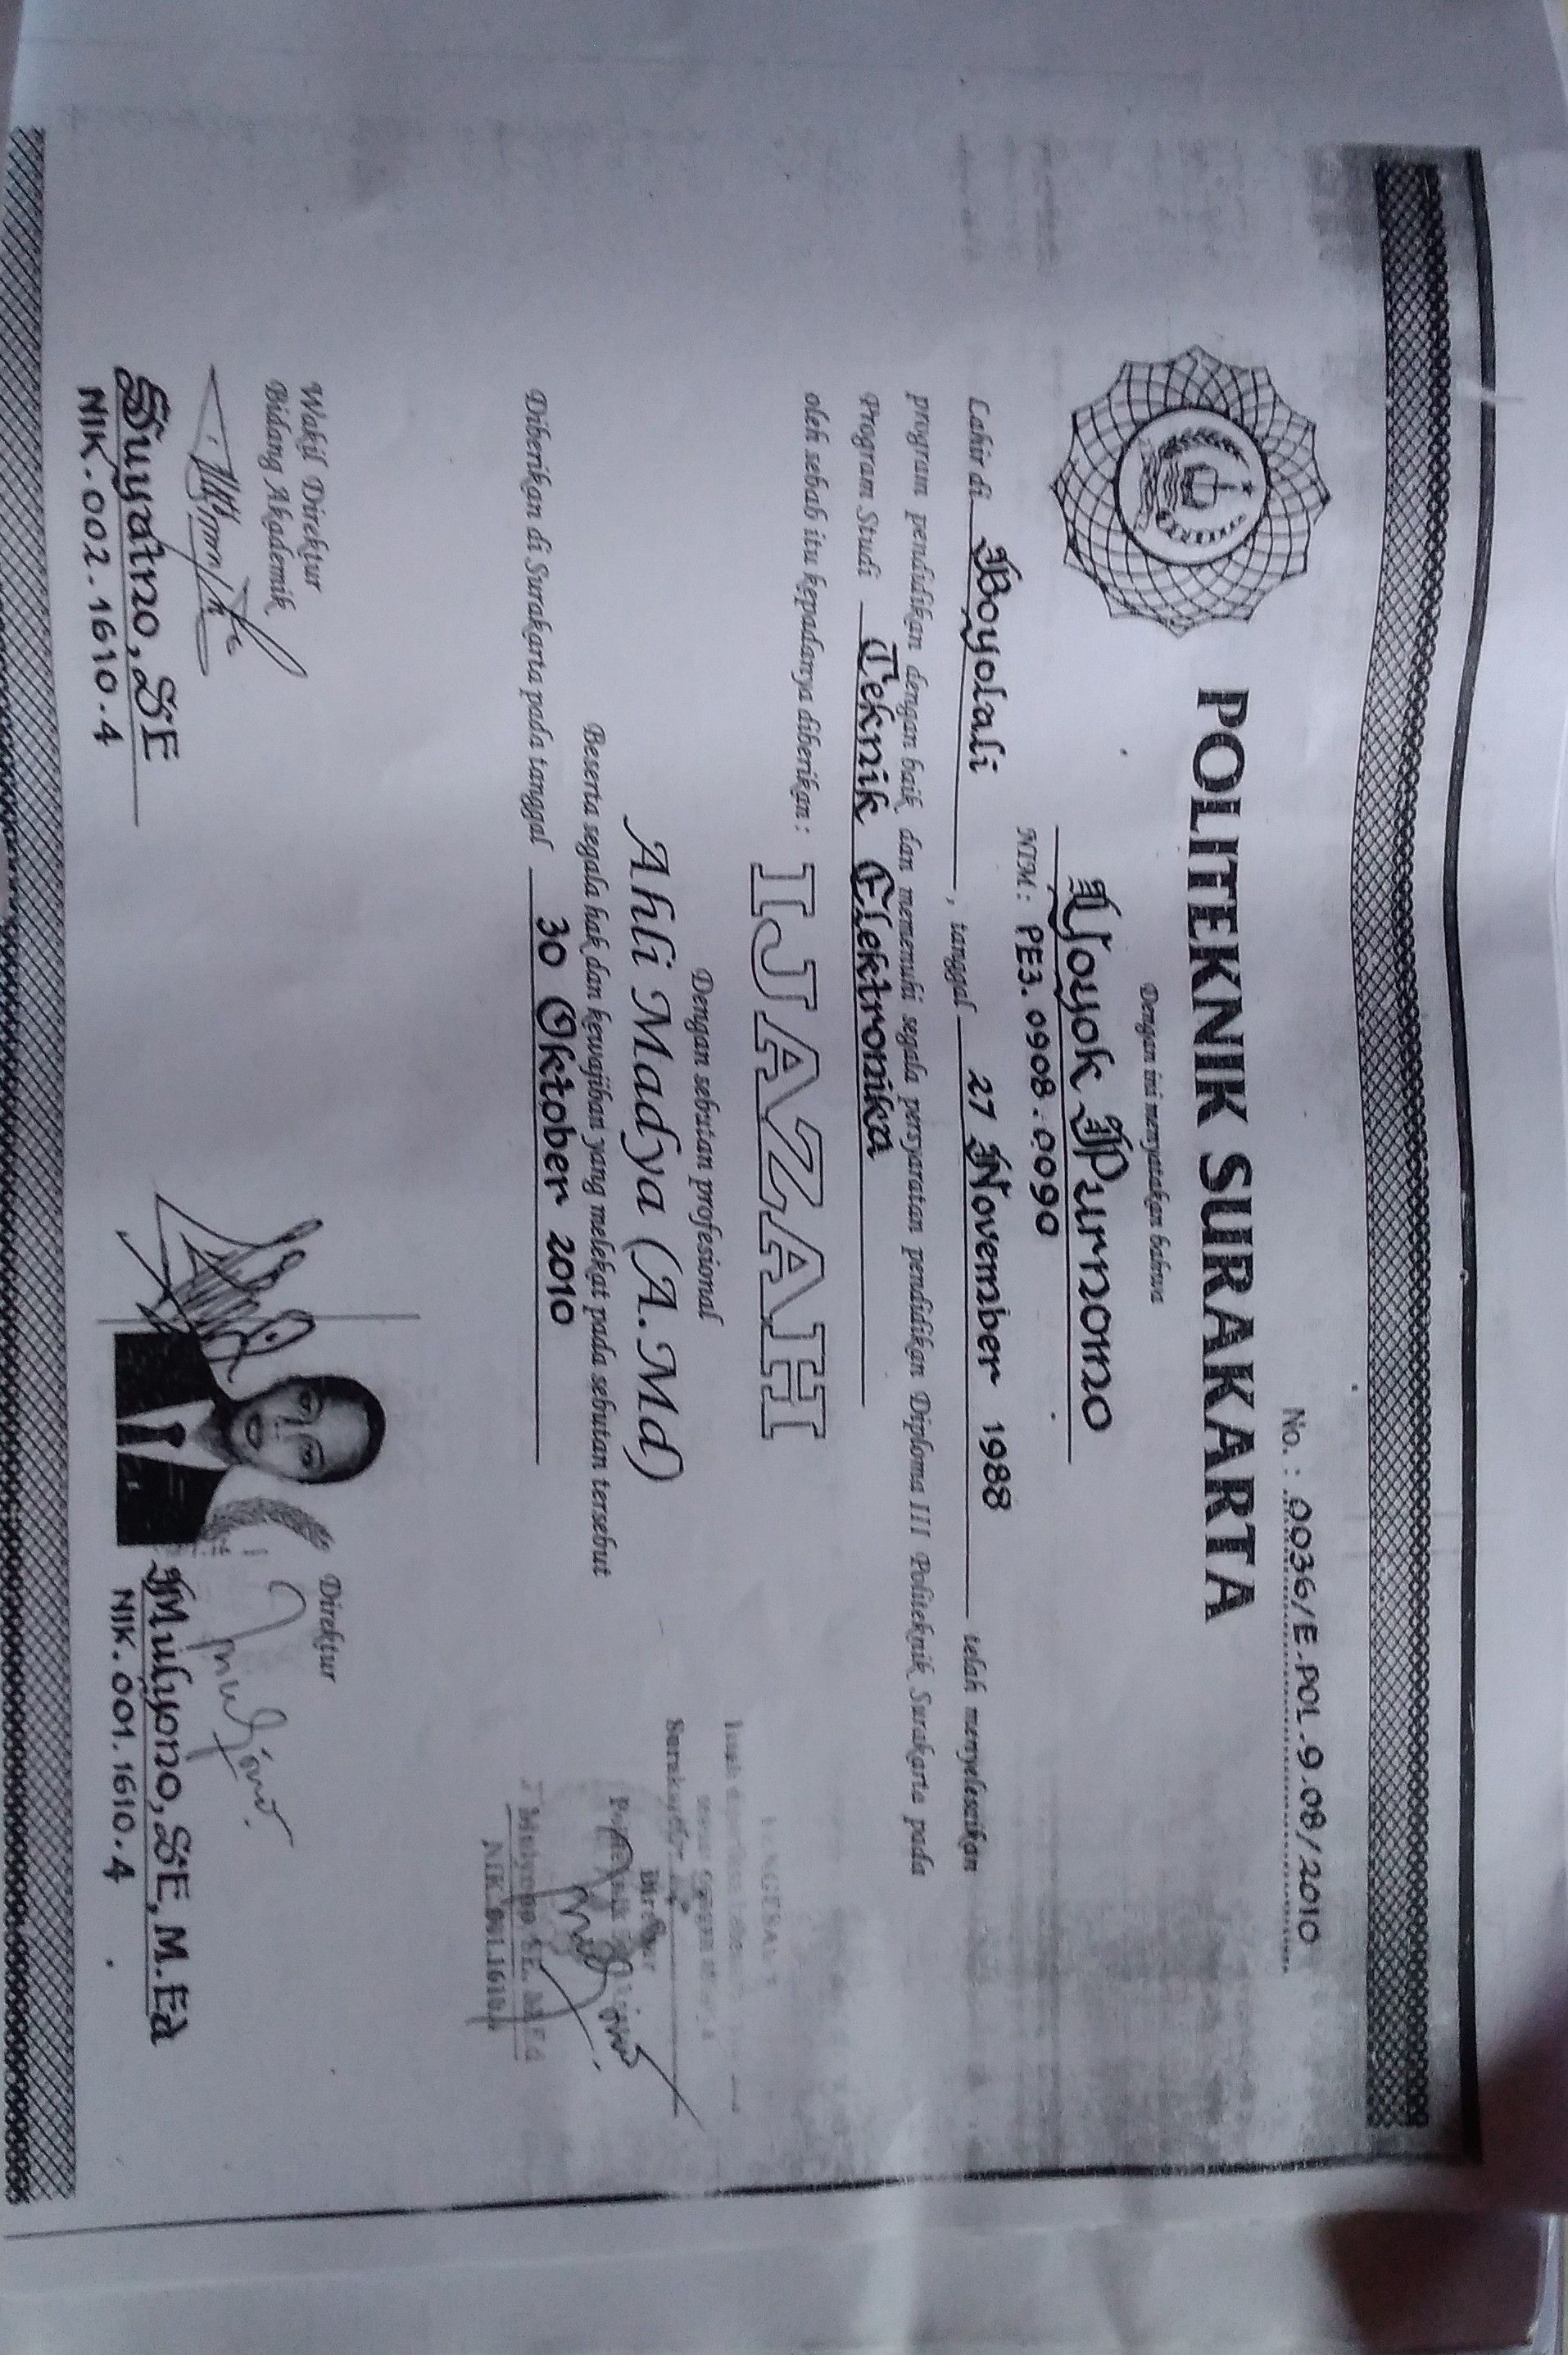 No. : 0036/E.POL.9.08/2010
POLITEKNIK SURAKARTA
Dengan ini menyatakan bahwa
Yoyok Purnomo
NIM: PE3.0908.0090
Lahir di Boyolali, tanggal 27 November 1988 telah menyelesaikan
program pendidikan dengan baik dan memenuhi segala persyaratan pendidikan Diploma III Politeknik Surakarta pada
Program Studi Teknik Elektronika
oleh sebab itu kepadanya diberikan:
IJAZAH
Dengan sebutan profesional
Ahli Madya (A.Md)
Beserta segala hak dan kewajiban yang melekat pada sebutan tersebut
Diberikan di Surakarta pada tanggal 30 Oktober 2010
Surakarta
Direktur
Mulyono SE. M.Ed
NIK.001.1610.4
Wakil Direktur
Bidang Akademik
Suyatno, SE
NIK.002.1610.4
Direktur
Mulyono, SE, M.Ed
NIK.001.1610.4